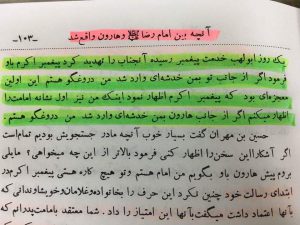 آنچه بین امام رضا و هارون واقع شد
-۱۰۳-
یک روز ابولهب خدمت پیغمبر رسیده آنجناب را تهدید کرد پیغمبر اکرم باو
فرمود اگر از جانب تو بمن خدشه‌ای وارد شد من دروغگو هستم این اولین
معجزه‌ای بود که پیغمبر اکرم اظهار نمود اینک من نیز اول نشانه امامت را
اظهار میکنم اگر از جانب هارون بمن خدشه‌ای وارد شد من دروغگو هستم.
حسین بن مهران گفت بسیار خوب آنچه ما در جستجویش بودیم تمام است
اگر آشکارا این سخن را اظهار کنی فرمود بالاتر از این چه میخواهی؟ مایلی
بروم پیش هارون باو بگویم من امام هستم و تو هیچ کاره هستی پیغمبر اکرم در
ابتدای رسالت خود چنین نکرد این حرف را بخانواده و غلامان و خویشاوندانی که
بآنها اعتماد داشت میگفت بآنها این امتیاز را داد. شما معتقد بامامت پدرانم که